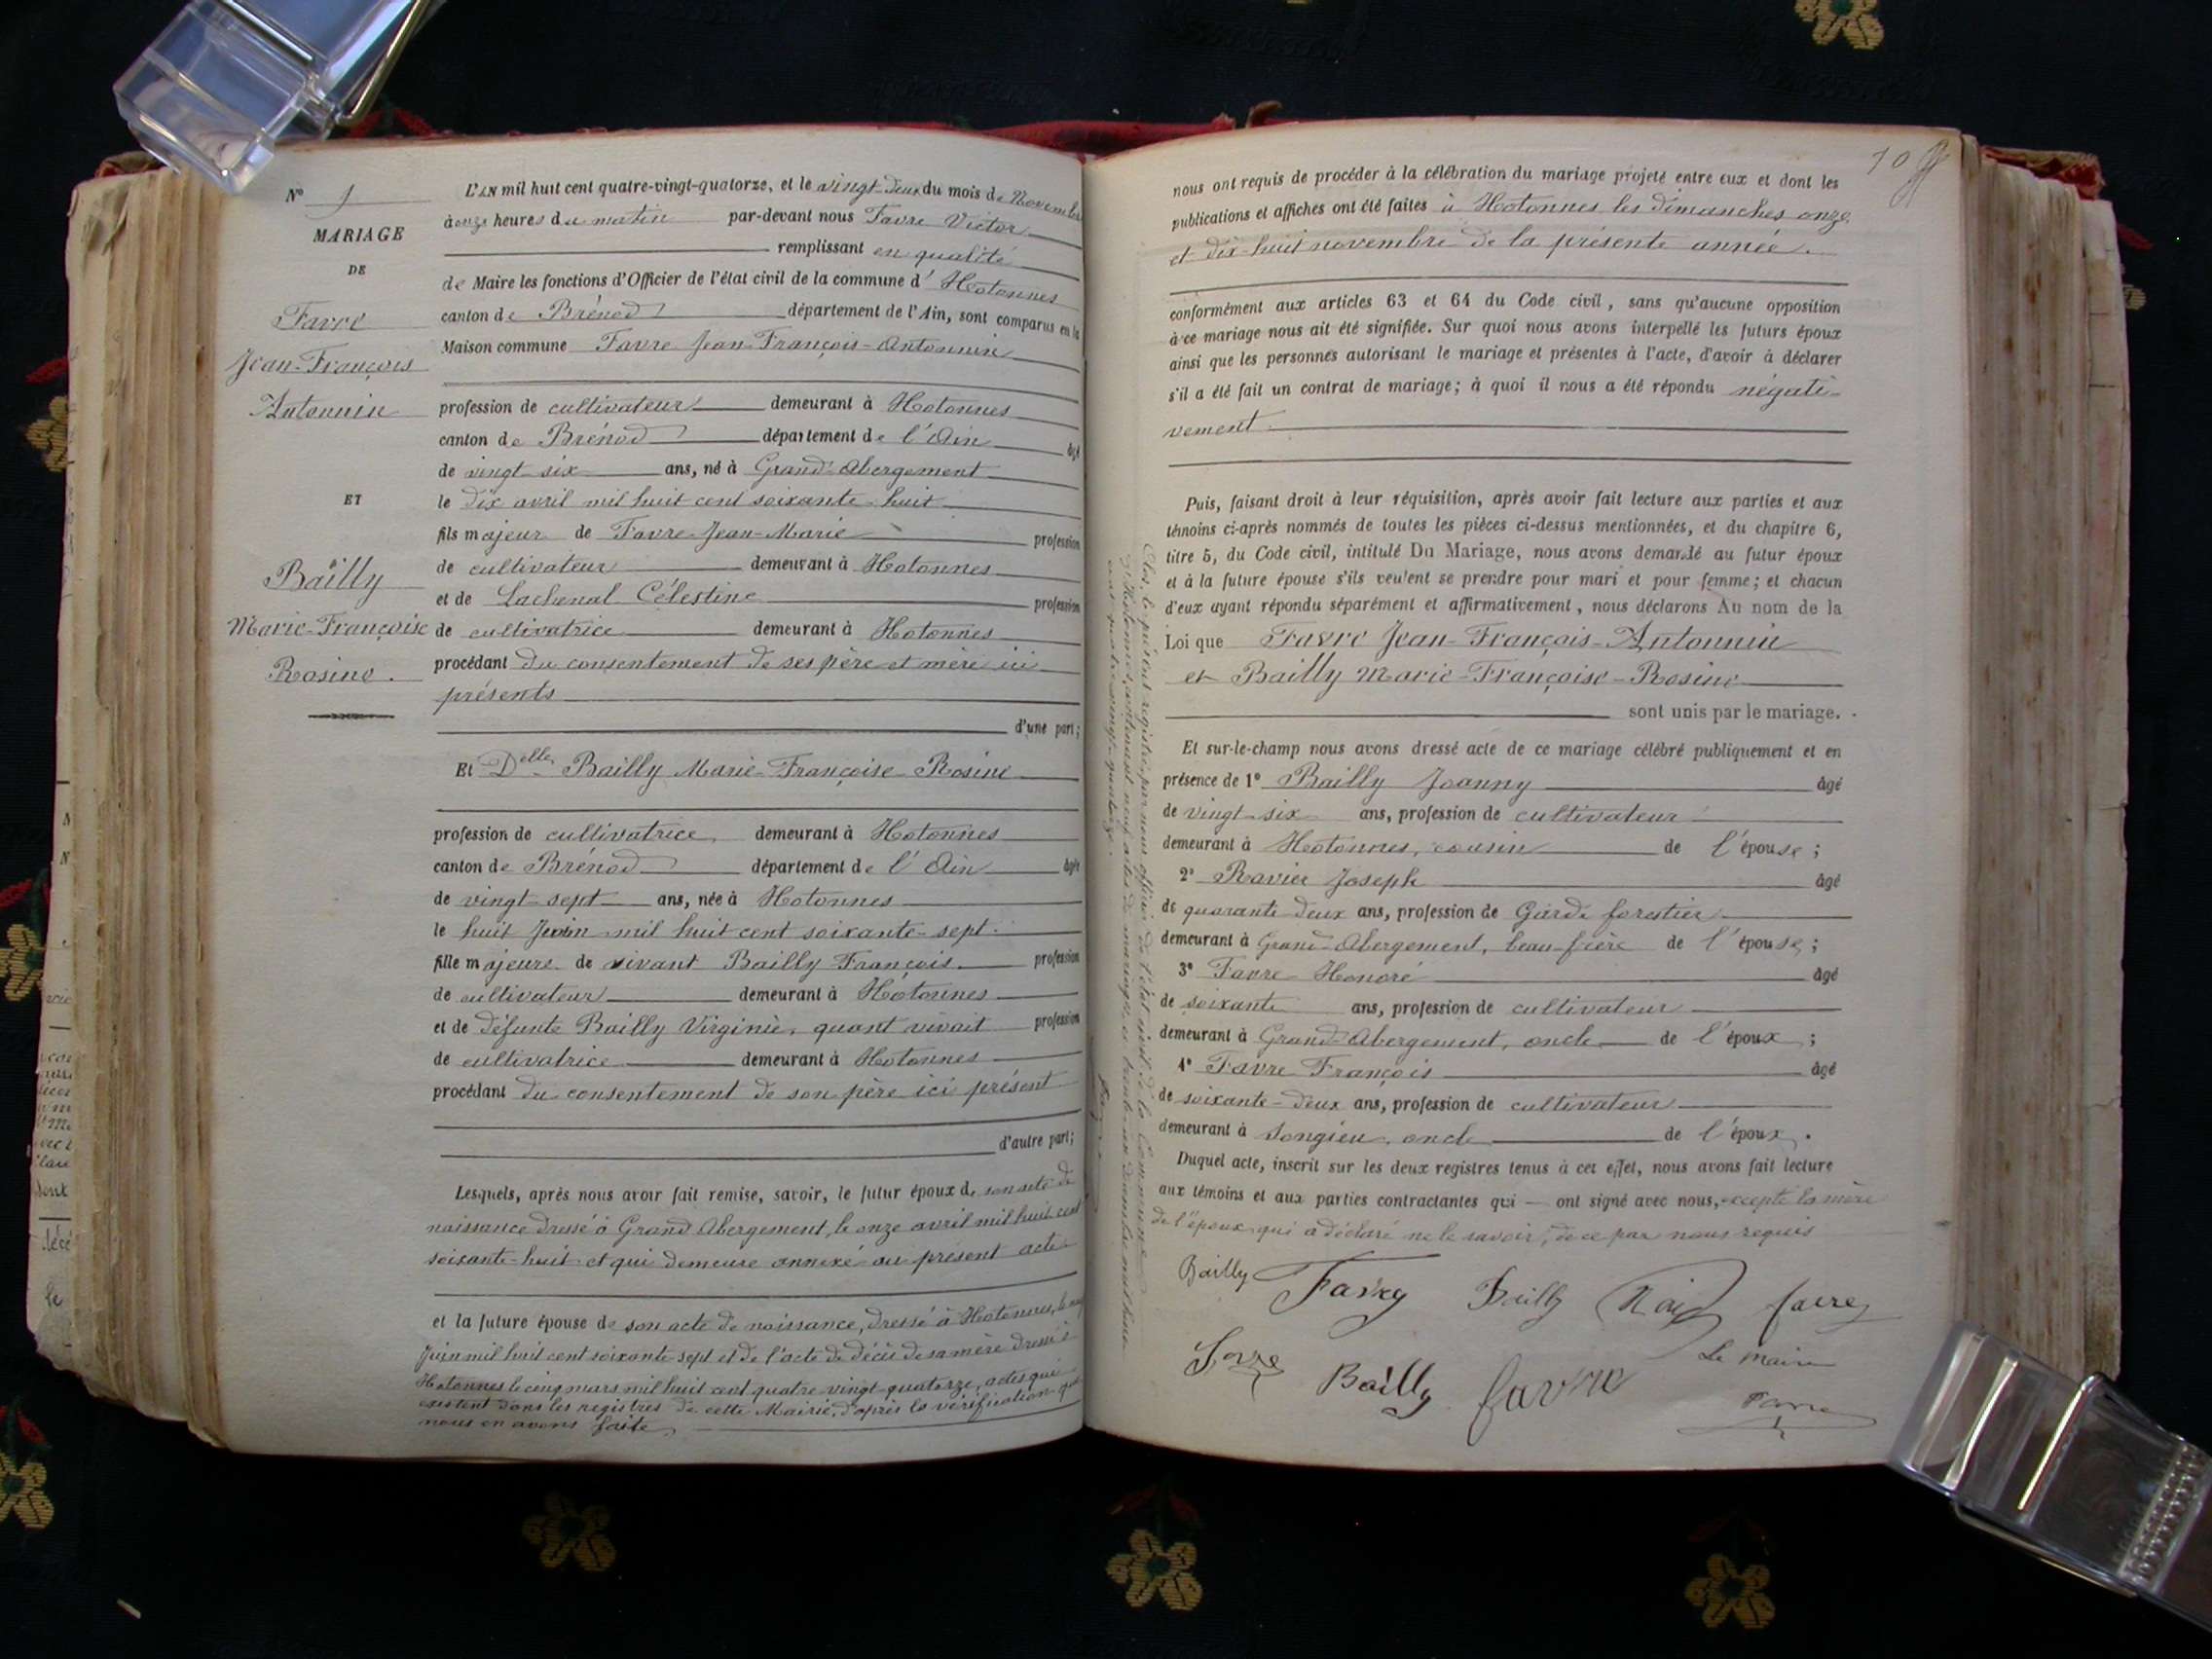 N°
MARIAGE
DE
Favre
Jean-François
Antonnin
ET
Bailly
Marie-Françoise
Rosine.
L'AN mil huit cent quatre-vingt-quatorze, et le vingt-deux du mois de Novembre
à onze heures du matin par-devant nous Favre Victor
remplissant en qualité
de Maire les fonctions d'Officier de l'état civil de la commune d'Hotonnes
canton de Brénod département de l'Ain, sont comparus en la
Maison commune Favre Jean-François-Antonnin
profession de cultivateur demeurant à Hotonnes
canton de Brénod département de l'Ain âgé
de vingt-six ans, né à Grand-Abergement
le dix avril mil huit cent soixante-huit
fils majeur de Favre Jean-Marie profession
de cultivateur demeurant à Hotonnes
et de Lachenal Célestine profession
de cultivatrice demeurant à Hotonnes
procédant du consentement de ses père et mère ici
présents
d'une part;
Et Delle Bailly Marie-Françoise-Rosine
profession de cultivatrice demeurant à Hotonnes
canton de Brénod département de l'Ain âgée
de vingt-sept ans, née à Hotonnes
le huit Juin mil huit cent soixante-sept
fille majeure de vivant Bailly François profession
de cultivateur demeurant à Hotonnes
et de défunte Bailly Virginie, quant vivait profession
de cultivatrice demeurant à Hotonnes
procédant du consentement de son père ici présent
d'autre part;
Lesquels, après nous avoir fait remise, savoir, le futur époux de son acte de
naissance dressé à Grand Abergement, le onze avril mil huit cent
soixante-huit et qui demeure annexé au présent acte
et la future épouse de son acte de naissance, dressé à Hotonnes, le
Juin mil huit cent soixante-sept et de l'acte de décès de sa mère dressé à
Hotonnes le cinq mars mil huit cent quatre-vingt-quatorze, actes qui
existent dans les registres de cette Mairie, d'après la vérification que
nous en avons faite
10
nous ont requis de procéder à la célébration du mariage projeté entre eux et dont les
publications et affiches ont été faites à Hotonnes les dimanches onze
et dix-huit novembre de la présente année.
conformément aux articles 63 et 64 du Code civil, sans qu'aucune opposition
à ce mariage nous ait été signifiée. Sur quoi nous avons interpellé les futurs époux
ainsi que les personnes autorisant le mariage et présentes à l'acte, d'avoir à déclarer
s'il a été fait un contrat de mariage; à quoi il nous a été répondu négati-
vement.
Puis, faisant droit à leur réquisition, après avoir fait lecture aux parties et aux
témoins ci-après nommés de toutes les pièces ci-dessus mentionnées, et du chapitre 6,
titre 5, du Code civil, intitulé Du Mariage, nous avons demandé au futur époux
et à la future épouse s'ils veulent se prendre pour mari et pour femme; et chacun
d'eux ayant répondu séparément et affirmativement, nous déclarons Au nom de la
Loi que Favre Jean-François-Antonnin
et Bailly Marie-Françoise-Rosine
sont unis par le mariage.
Et sur-le-champ nous avons dressé acte de ce mariage célébré publiquement et en
présence de 1° Bailly Joanny âgé
de vingt-six ans, profession de cultivateur
demeurant à Hotonnes, cousin de l'épouse;
2° Ravier Joseph âgé
de quarante-deux ans, profession de Garde forestier
demeurant à Grand-Abergement, beau-frère de l'épouse;
3° Favre Honoré âgé
de soixante ans, profession de cultivateur
demeurant à Grand-Abergement, oncle de l'époux;
4° Favre François âgé
de soixante-deux ans, profession de cultivateur
demeurant à Songieu, oncle de l'époux.
Duquel acte, inscrit sur les deux registres tenus à cet effet, nous avons fait lecture
aux témoins et aux parties contractantes qui ont signé avec nous, excepté la mère
de l'époux qui a déclaré ne le savoir, de ce par nous requis
Bailly Favre Bailly favre
Bailly favre Le Maire
Favre
Clos le présent registre par nous officier de l'état civil de la Commune
d'Hotonnes, contenant neuf actes de mariage, ce trente-un décembre mil huit
cent quatre-vingt-quatorze.